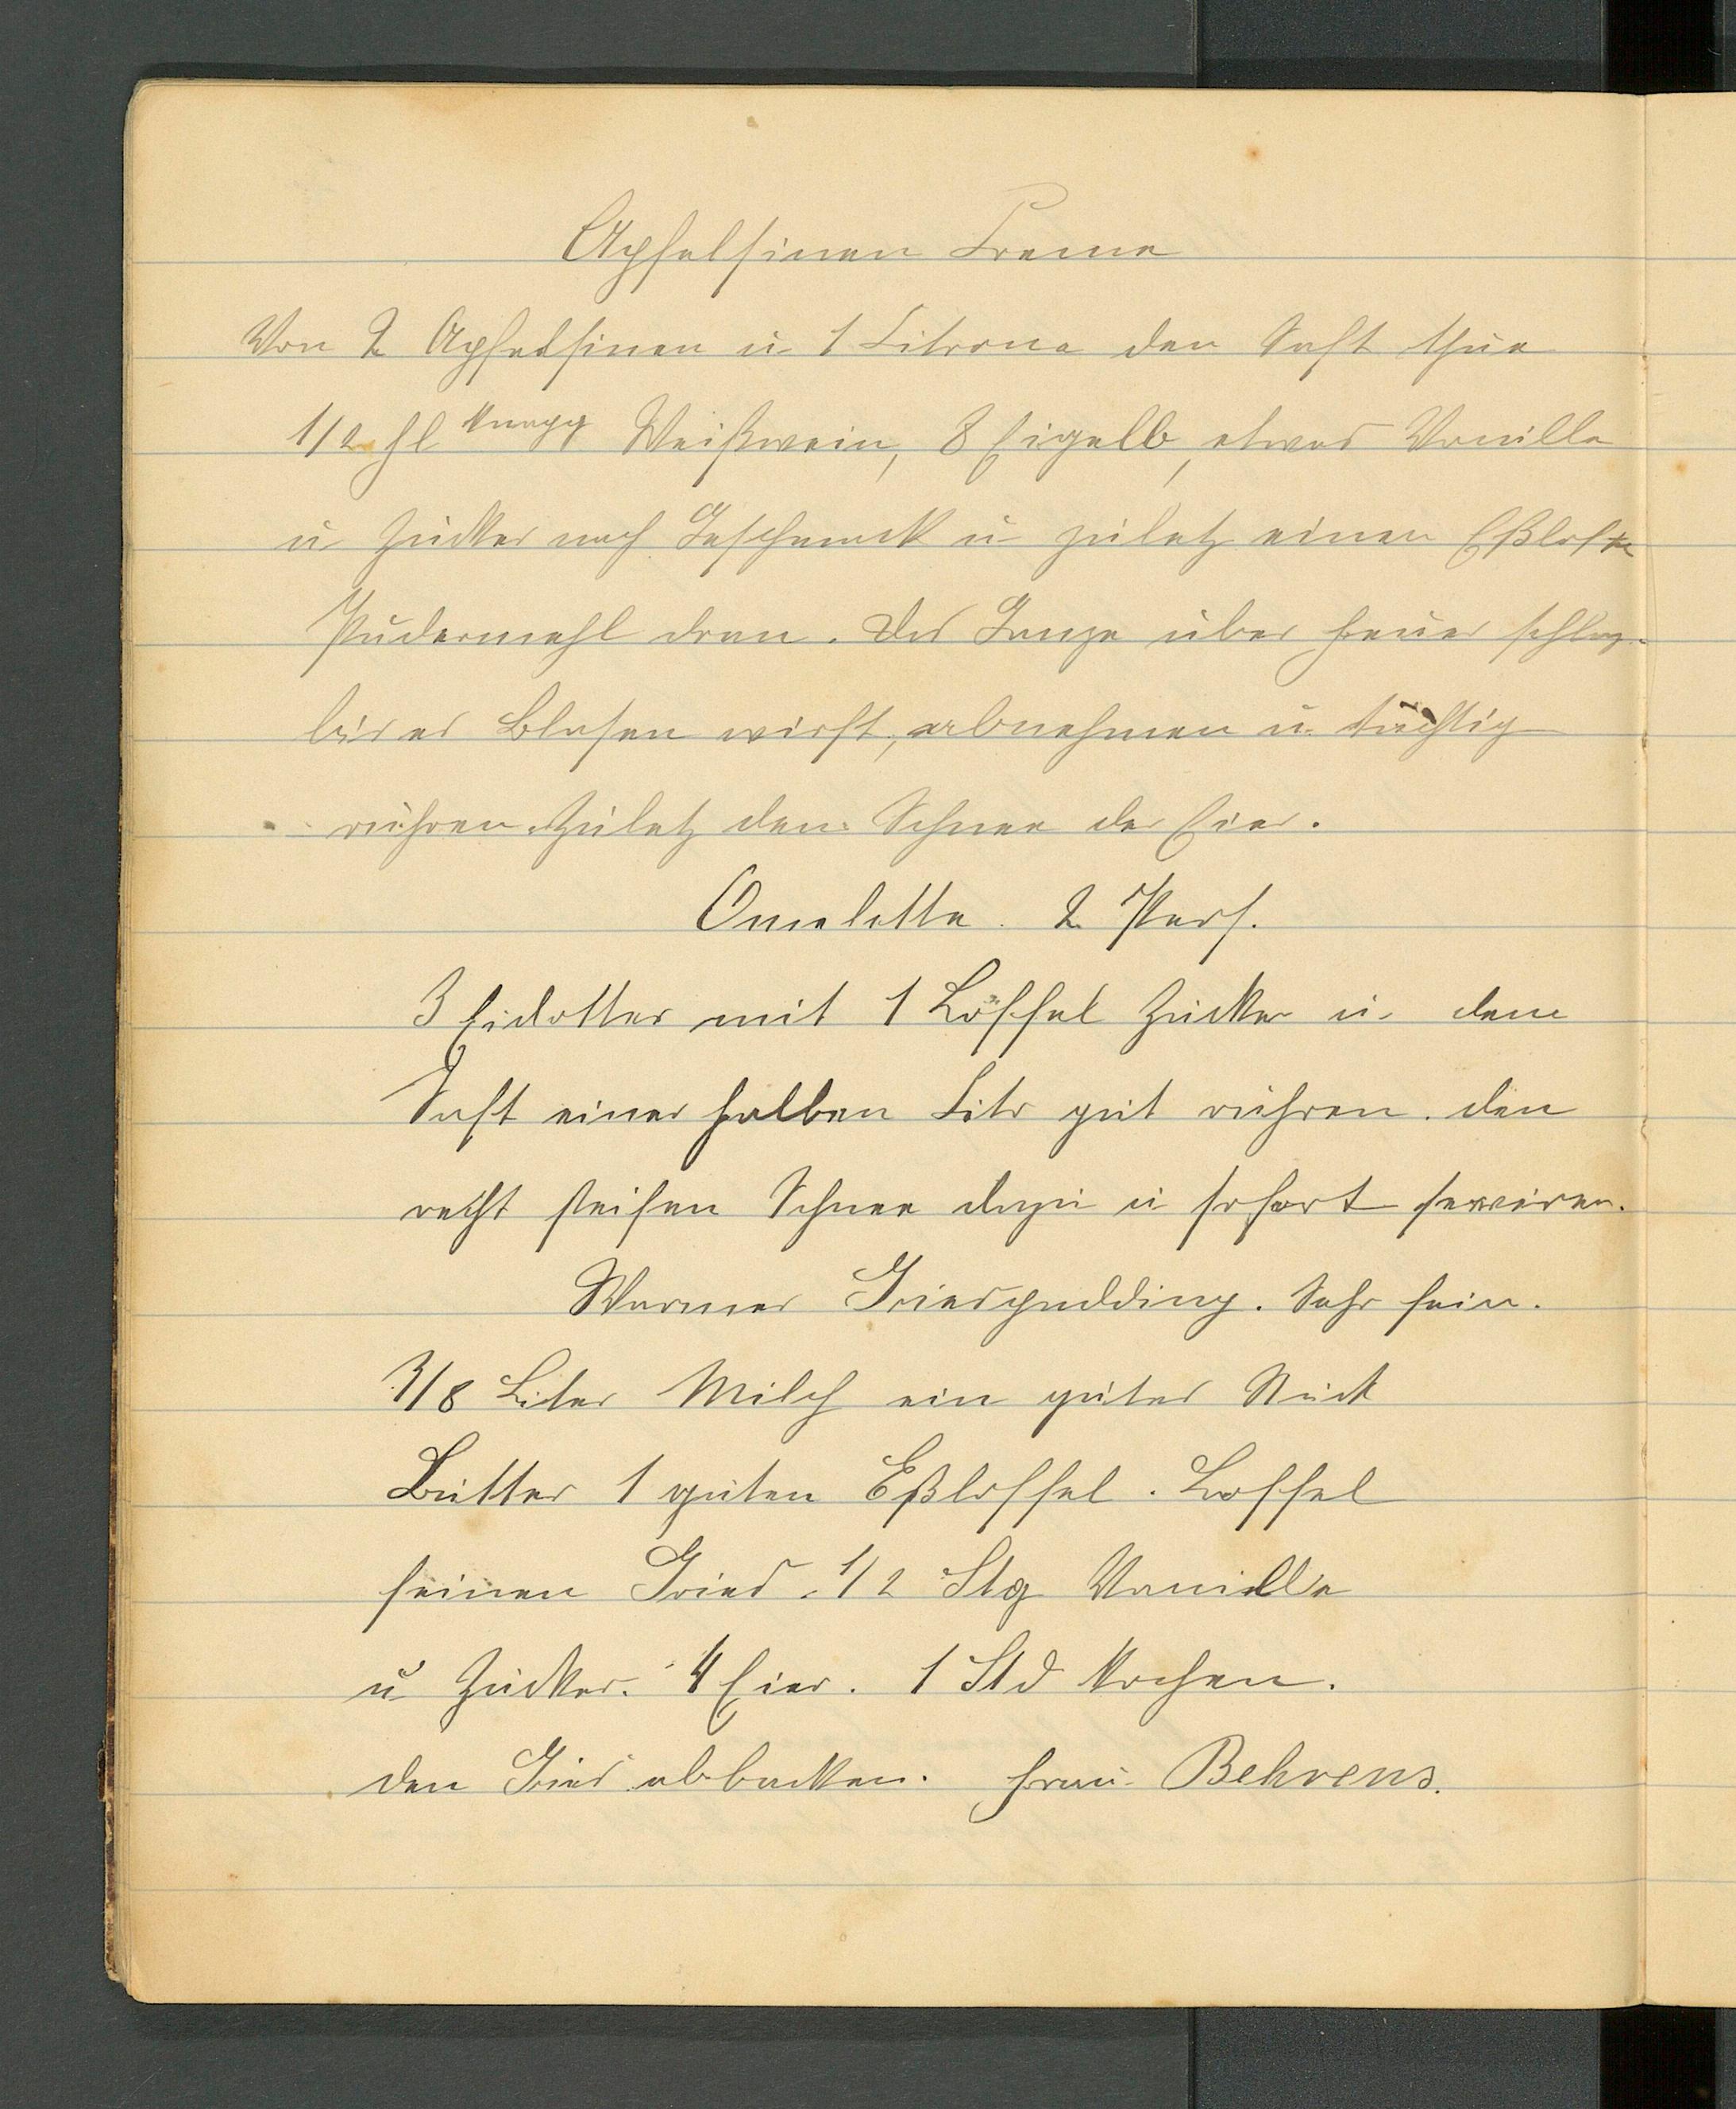 Apfelsinen Creme
Von 2 Apfelsinen u 1 Citrone den Saft thue
1/2 Fl knapp Weißwein, 8 Eigelb, etwas Vanille
u Zucker nach Geschmack u zuletz einen Eßlöffe
Pudermehl dran. Das Ganze über Feuer schlag.
bis es Blasen wirft, abnehmen u. tüchtig
rühren. Zuletz den Schnee der Eier.
Omelette. 2 Pers.
3 Eidotter mit 1 Löffel Zucker u. dem
Saft einer halben Citr gut rühren. den
recht steifen Schnee dazu u sofort serviren.
Warmer Griespudding. Sehr fein.
3/8 Liter Milch ein gutes Stück
Butter 1 guten Eßloffel. Loffel
feinen Gries. 1/2 Stg Vanille
u Zucker. 4 Eier. 1 Std kochen.
den Gries abbacken. Frau Behrens.